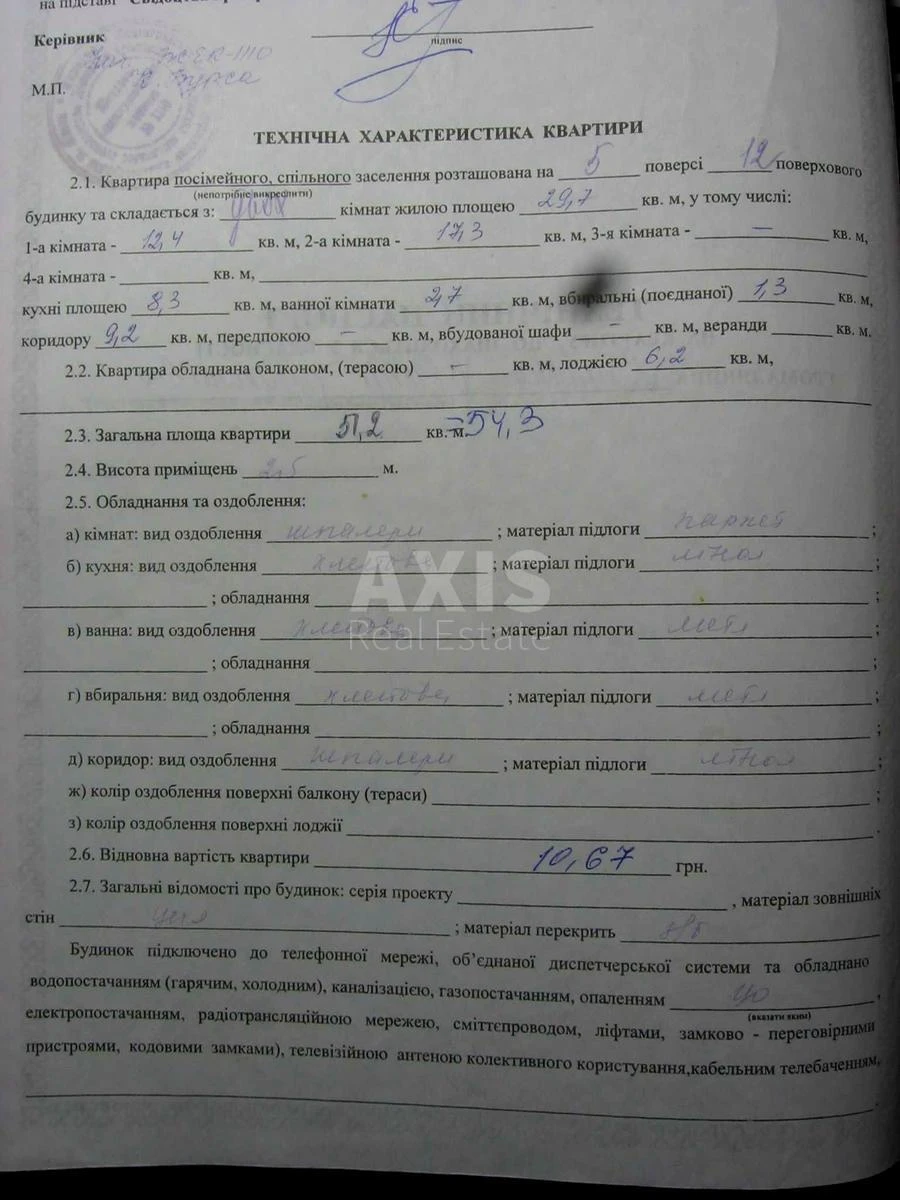 на підставі
Керівник
підпис
М.П.
ТЕХНІЧНА ХАРАКТЕРИСТИКА КВАРТИРИ
2.1. Квартира посімейного, спільного заселення розташована на 5 поверсі 12 поверхового
(непотрібне викреслити)
будинку та складається з: двох кімнат жилою площею 29,7 кв. м, у тому числі:
1-а кімната - 12,4 кв. м, 2-а кімната - 17,3 кв. м, 3-я кімната - — кв. м,
4-а кімната - кв. м,
кухні площею 8,3 кв. м, ванної кімнати 2,7 кв. м, вбиральні (поєднаної) 1,3 кв. м,
коридору 9,2 кв. м, передпокою — кв. м, вбудованої шафи — кв. м, веранди кв. м.
2.2. Квартира обладнана балконом, (терасою) — кв. м, лоджією 6,2 кв. м,
2.3. Загальна площа квартири 51,2 кв. м. 54,3
2.4. Висота приміщень 2,5 м.
2.5. Обладнання та оздоблення:
а) кімнат: вид оздоблення шпалери ; матеріал підлоги паркет ;
б) кухня: вид оздоблення ; матеріал підлоги лінол ;
; обладнання ;
в) ванна: вид оздоблення ; матеріал підлоги ;
; обладнання ;
г) вбиральня: вид оздоблення ; матеріал підлоги ;
; обладнання ;
д) коридор: вид оздоблення шпалери ; матеріал підлоги лінол ;
ж) колір оздоблення поверхні балкону (тераси) ;
з) колір оздоблення поверхні лоджії .
2.6. Відновна вартість квартири 10,67 грн.
2.7. Загальні відомості про будинок: серія проекту , матеріал зовнішніх
стін ; матеріал перекрить
Будинок підключено до телефонної мережі, об’єднаної диспетчерської системи та обладнано
водопостачанням (гарячим, холодним), каналізацією, газопостачанням, опаленням цо ,
(вказати яким)
електропостачанням, радіотрансляційною мережею, сміттєпроводом, ліфтами, замково - переговірними
пристроями, кодовими замками), телевізійною антеною колективного користування,кабельним телебаченням,
AXIS
Real Estate